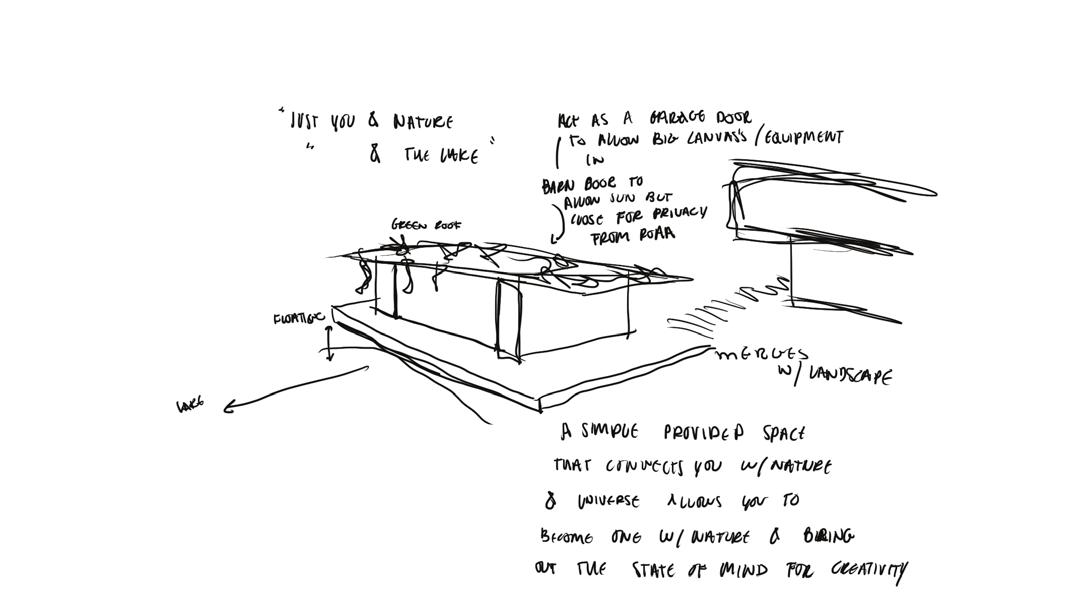 "JUST YOU & NATURE
" & THE LAKE"
ACT AS A GARAGE DOOR
TO ALLOW BIG CANVAS'S / EQUIPMENT
IN
BARN DOOR TO
ALLOW SUN BUT
CLOSE FOR PRIVACY
FROM ROAD
GREEN ROOF
FLOATING
LAKE
MERGES
W/ LANDSCAPE
A SIMPLE PROVIDED SPACE
THAT CONNECTS YOU W/ NATURE
& UNIVERSE ALLOWS YOU TO
BECOME ONE W/ NATURE & BRING
OUT THE STATE OF MIND FOR CREATIVITY